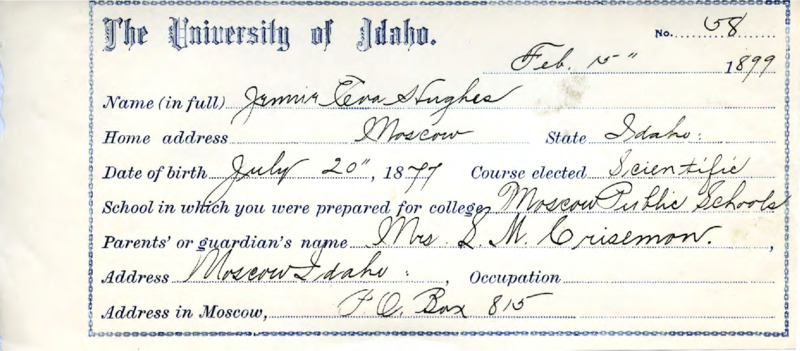 The University of Idaho.
No. 58
Feb. 15" 1899
Name (in full) Jennie Eva Hughes
Home address Moscow State Idaho.
Date of birth July 20", 1877 Course elected Scientific
School in which you were prepared for college, Moscow Public Schools
Parents' or guardian's name Mrs. L. M. Crisemon.,
Address Moscow Idaho., Occupation
Address in Moscow, P.O. Box 815